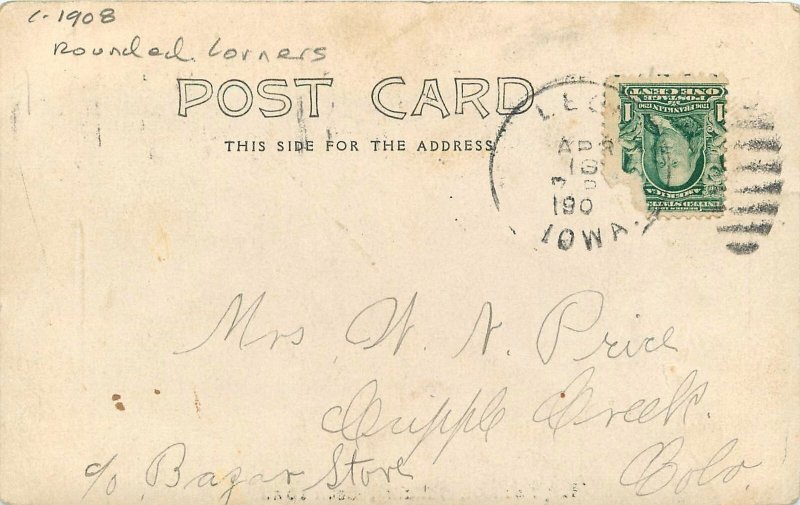 c-1908
Rounded Corners
POST CARD
THIS SIDE FOR THE ADDRESS
APR
16
190
IOWA.
ONE CENT
POSTAGE
1 1
Mrs W. N. Price
Cripple Creek.
c/o Bazar Store Colo.